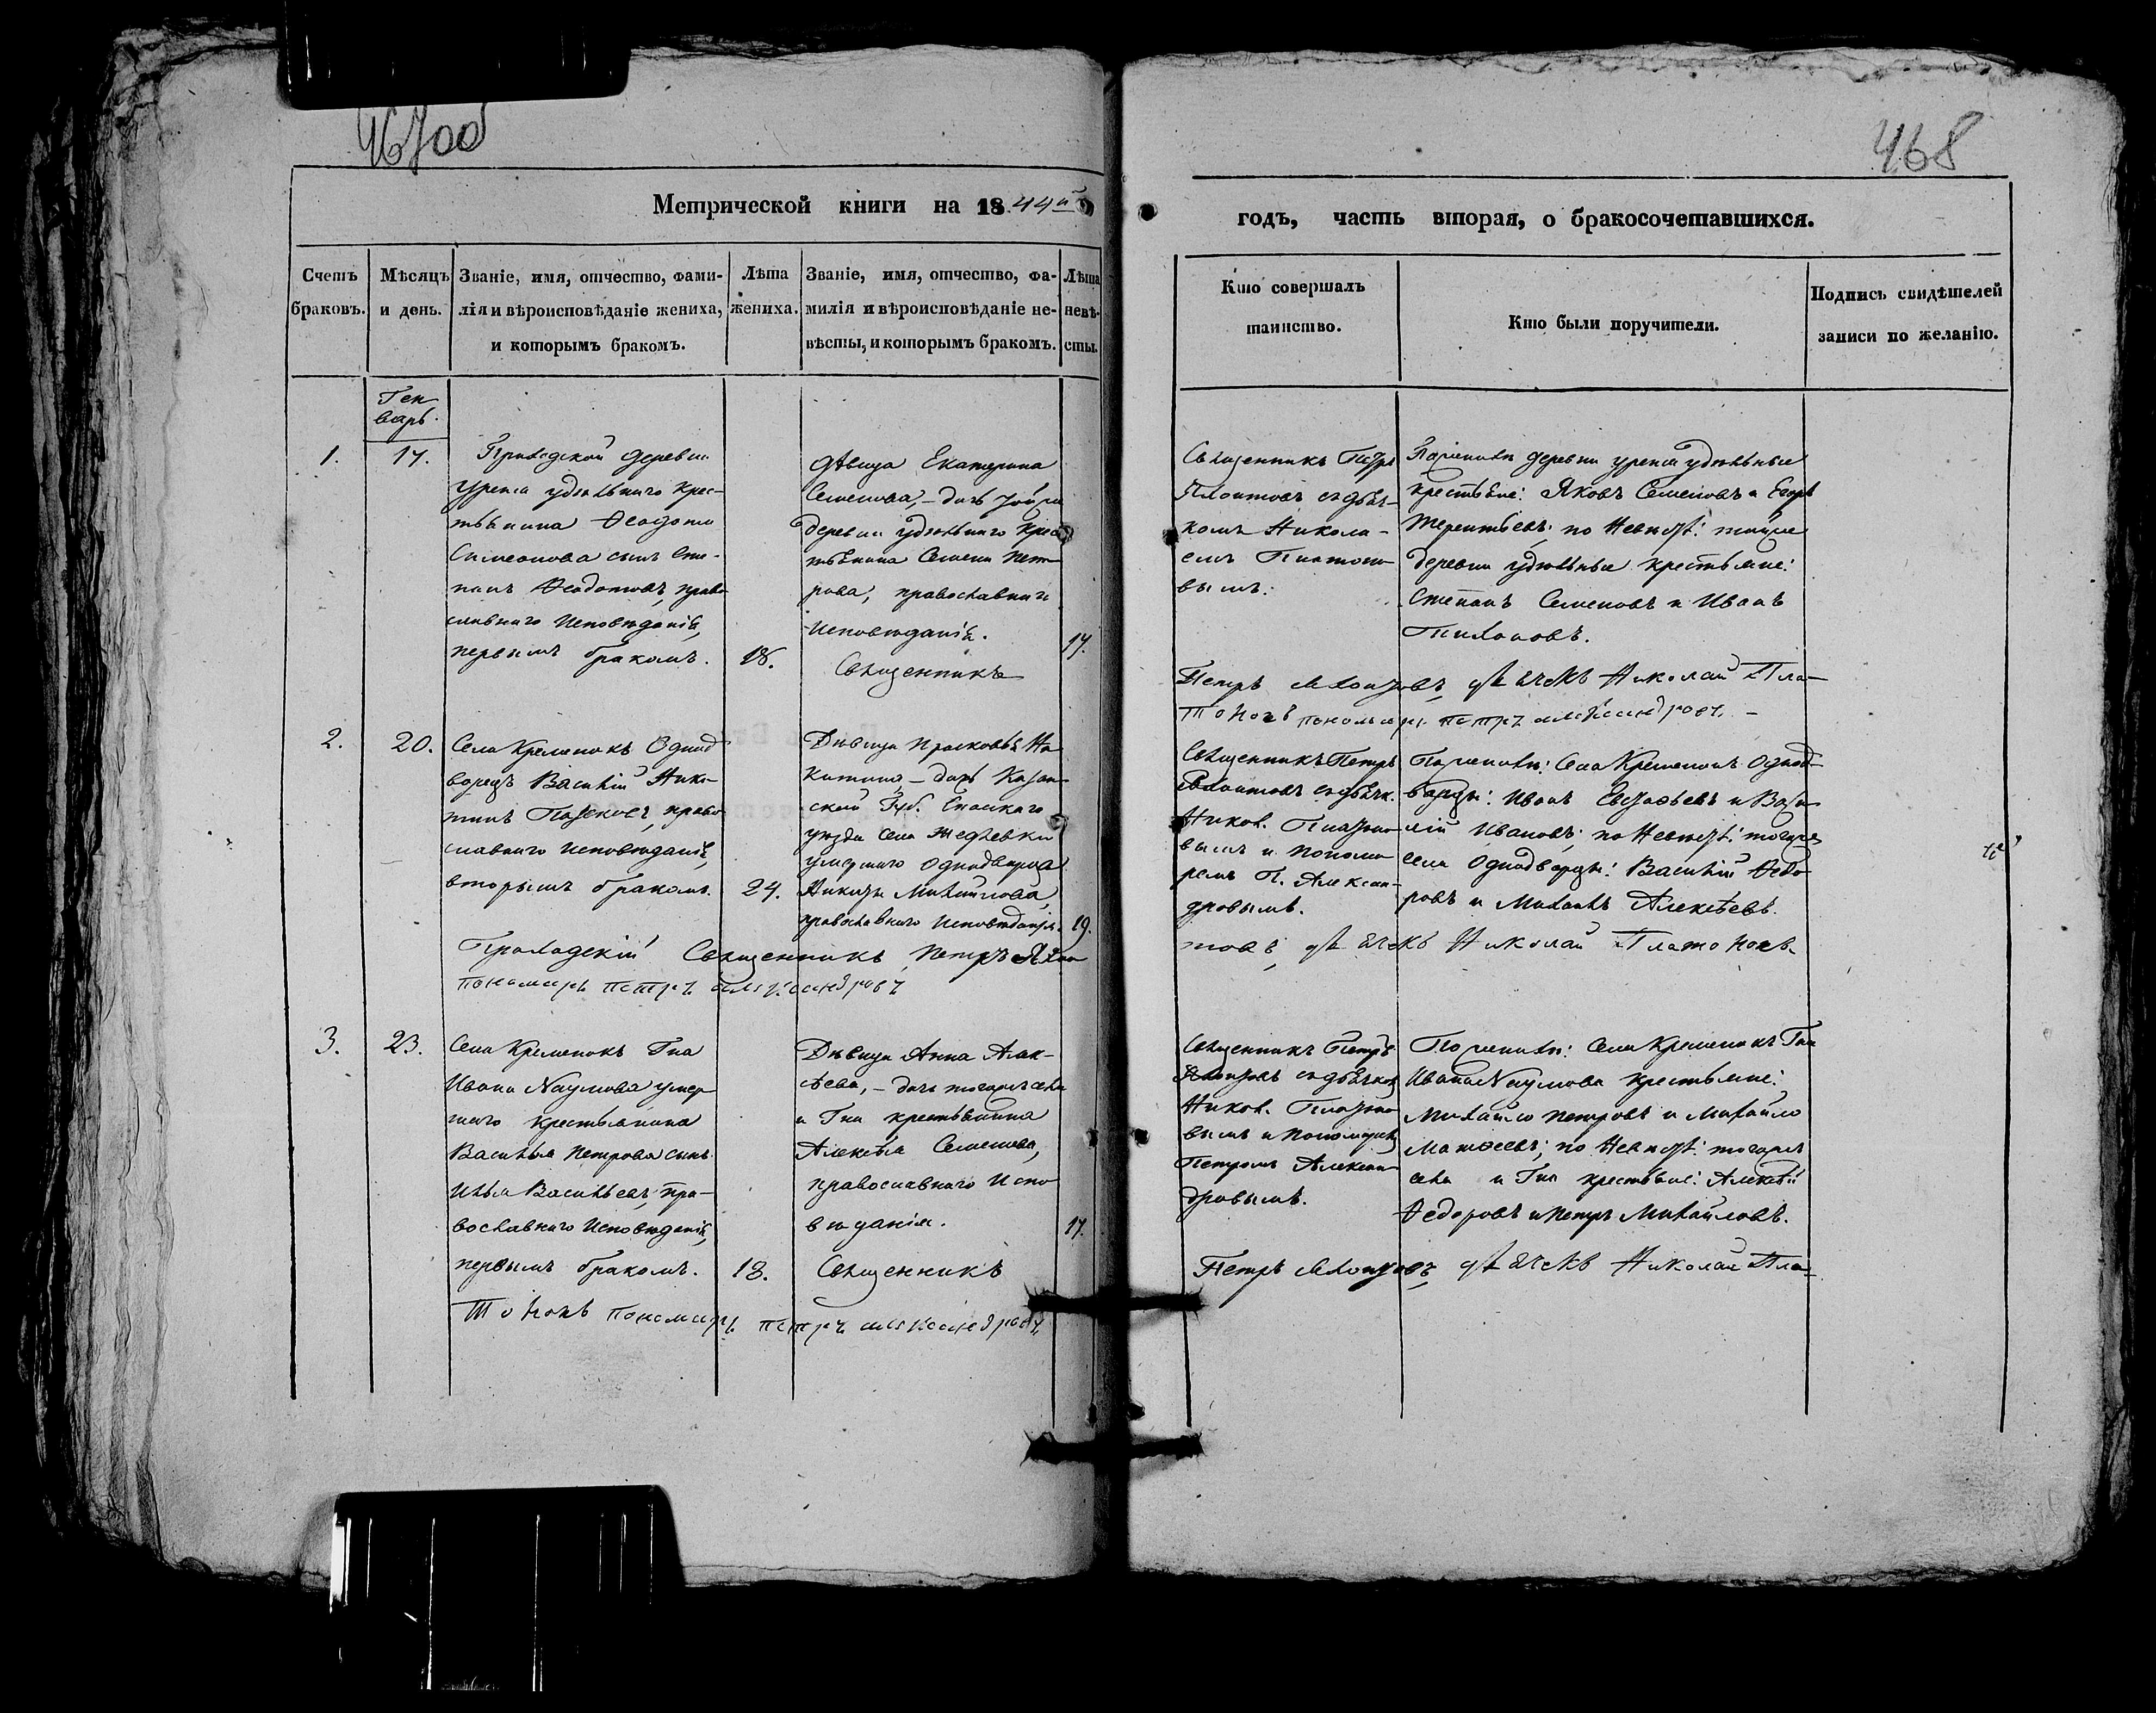 468
Метрической книги на 1844й
годъ, часть вторая, о бракосочетавшихся.
Счетъ браковъ.
Мѣсяцъ и день.
Званіе, имя, отчество, фами-
лія и вѣроисповѣданіе жениха,
и которымъ бракомъ.
Лѣта
жениха.
Званіе, имя, отчество, фа-
милія и вѣроисповѣданіе не-
вѣсты, и которымъ бракомъ.
Лѣта
невѣ-
сты.
Кто совершалъ
таинство.
Кто были поручители.
Подпись свидѣтелей
записи по желанію.
Ген
варь.
1.
17.
Приходской деревни
Уренa удѣльнаго крес-
тьянина Ѳеодота
Симеонова сынъ Сте-
панъ Ѳеодотовъ, право
славнаго исповѣданія,
первымъ бракомъ.
18.
дѣвица Екатерина
Семенова, – дочь тойже
деревни удѣльнаго крес
тьянина Семена Пет
рова, православнаго
исповѣданія.
17.
Священникъ
Священникъ Петръ
съ дьяч-
комъ Никола-
емъ Платоно
вымъ.
деревни удѣльные
крестьяне: Яковъ Семеновъ и Егоръ
Терентьевъ; по невѣстѣ: тойже
деревни удѣльные крестьяне:
Степанъ Семеновъ и Иванъ
Тихоновъ.
Петръ дьячекъ Николай Пла-
тоновъ пономарь петръ александровъ. –
2.
20.
Села Кременокъ Однод
ворецъ Василій Ники-
тинъ право
славнаго исповѣданія,
вторымъ бракомъ.
24.
Дѣвица Прасковья Ни
китина – дочь Казан
ской Губ. Спаскаго
уѣзда села
умершаго однодворца
Никиты Михайлова,
православнаго исповѣданія.
19.
Священникъ Петръ
съ дьячк.
Никол. Платоно
вымъ и понома
ремъ П. Алексан-
дровымъ.
По женихѣ: Села Кременокъ Однод-
ворцы: Иванъ Евстафьевъ и Васи
лій Ивановъ; по невѣстѣ: тогоже
села однодворцы: Василій Ѳедо
ровъ и Михаилъ Алексѣевъ.
Приходскій Священникъ Петръ
дьячекъ Николай Платоновъ
пономарь петръ александровъ
3.
23.
Села Кременокъ Гна
Ивана Наумова умер
шаго крестьянина
Василья Петрова сынъ
Илья Васильевъ, пра-
вославнаго исповѣданія,
первымъ бракомъ.
18.
Дѣвица Анна Алек-
сѣева, – дочь тогоже села
и Гна крестьянина
Алексѣя Семенова,
православнаго испо
вѣданія.
17.
Священникъ
Священникъ Петръ
съ дьячкомъ
Никол. Платоно
вымъ и пономаремъ
Петромъ Алексан
дровымъ.
По женихѣ: Села Кременокъ Гна
Ивана Наумова крестьяне:
Михайло Петровъ и Михайло
Матѳеевъ; по невѣстѣ: тогоже
села и Гна крестьяне: Алексѣй
Ѳедоровъ и Петръ Михайловъ.
Петръ дьячекъ Николай Пла-
тоновъ пономарь петръ александровъ